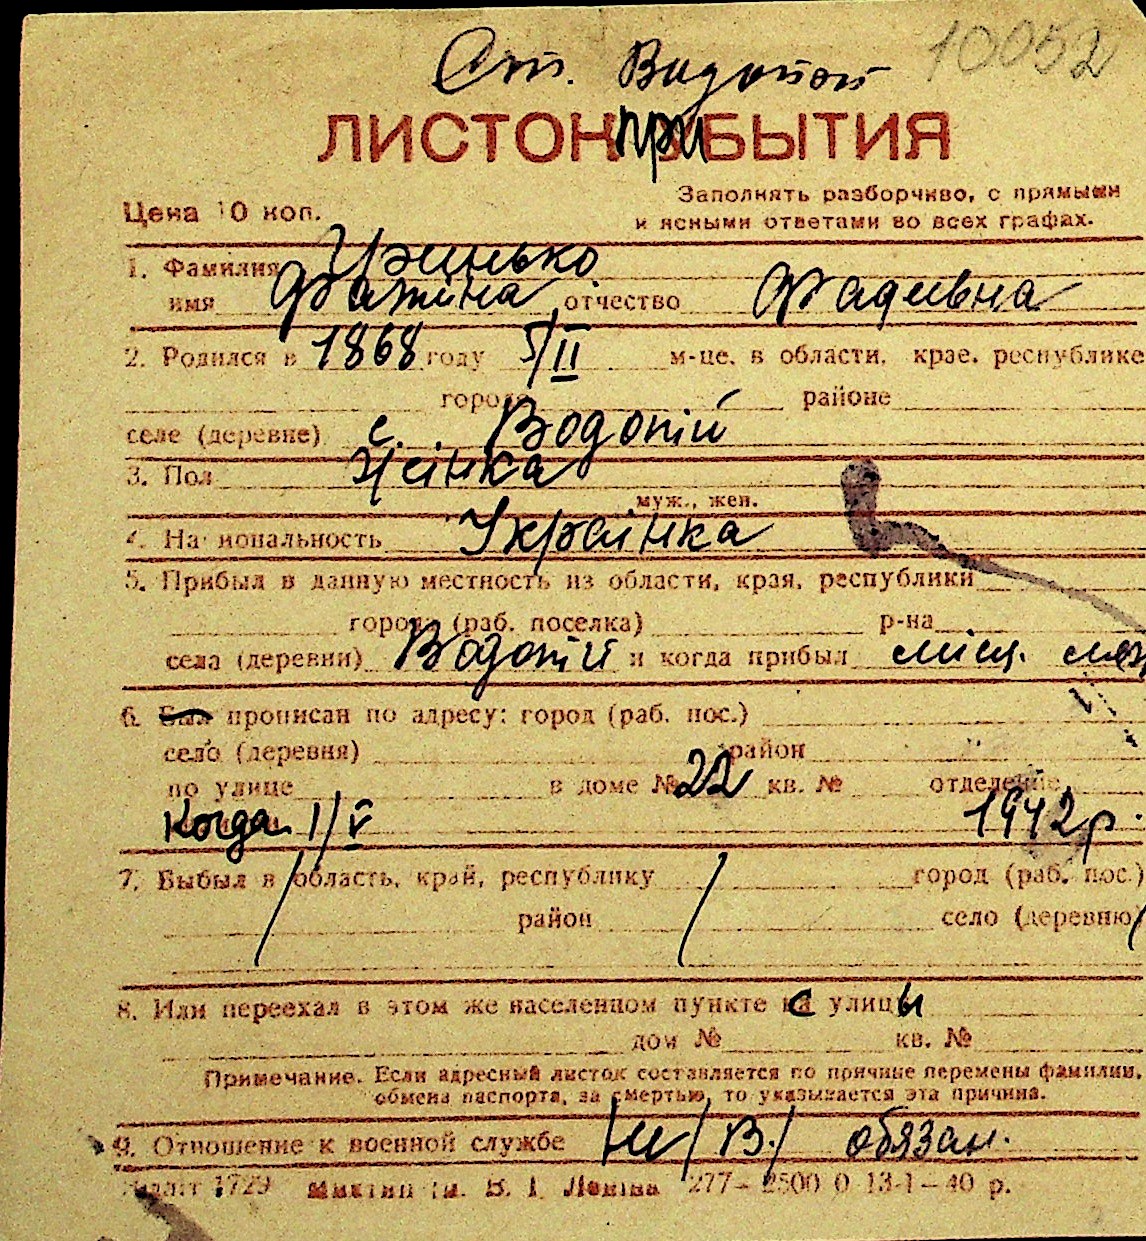 10052
Ст. Водопой
ЛИСТОК ПРИБЫТИЯ
Цена 10 коп.
Заполнять разборчиво, с прямыми
и ясными ответами во всех графах.
1. Фамилия Гринько
имя отчество Фадеевна
2. Родился в 1868 году 5/II м-це, в области, крае, республике
города районе
селе (деревне) с. Водопій
3. Пол Жінка
муж., жен.
4. Национальность Українка
5. Прибыл в данную местность из области, края, республики
города (раб. поселка) р-на
села (деревни) Водопій и когда прибыл місц.
6. Был прописан по адресу: город (раб. пос.)
село (деревня) район
по улице в доме № 22 кв. № отделение
Когда 1/V 1942 р.
7. Выбыл в область, край, республику город (раб. пос.)
район село (деревню)
8. Или переехал в этом же населенном пункте с улицы
дом № кв. №
Примечание. Если адресный листок составляется по причине перемены фамилии,
обмена паспорта, за смертью, то указывается эта причина.
9. Отношение к военной службе Н/В/ обязан.
1729 им. В. І. Леніна 277—2500 0 13-1—40 р.